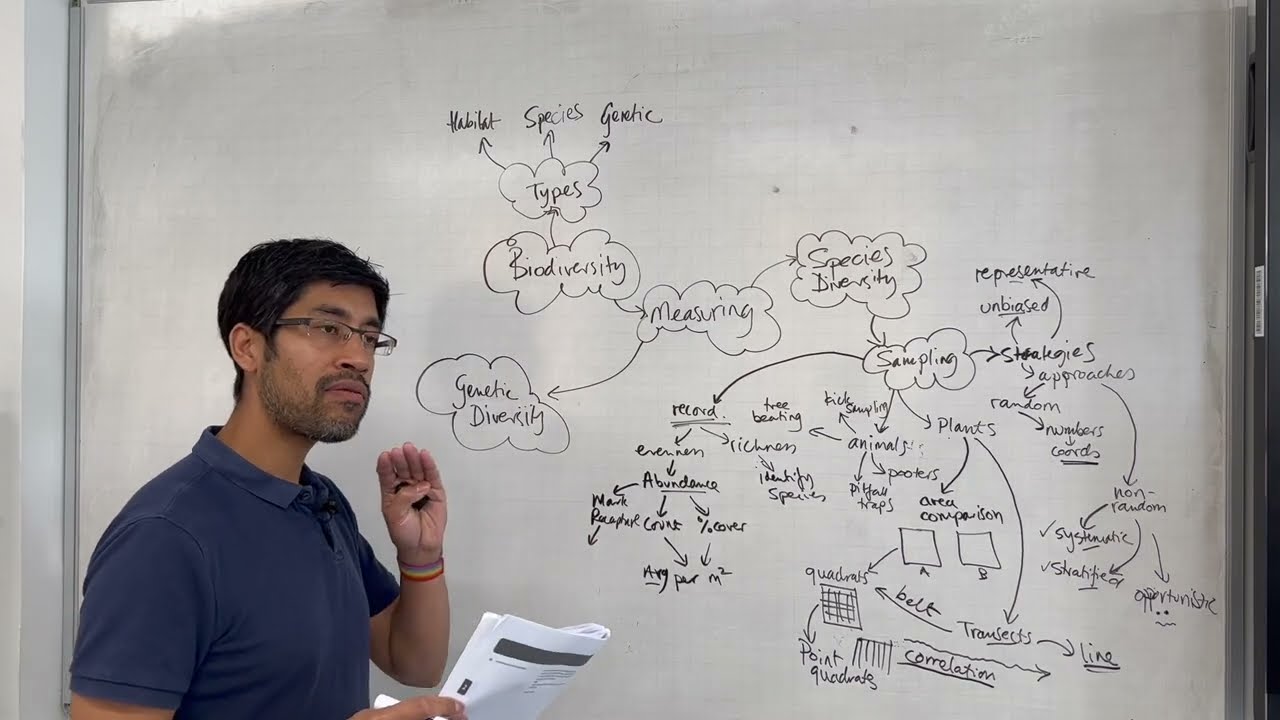 Habitat Species Genetic
Types
Biodiversity
Measuring
Species
Diversity
Genetic
Diversity
Sampling
representative
unbiased
Strategies
approaches
random
numbers
coords
non-
random
✓ systematic
✓ Stratified
opportunistic
record
evenness
richness
identify
species
Abundance
Mark
Recapture
Count
% cover
Avg per m²
tree
beating
kick
sampling
animals
pooters
Pitfall
traps
Plants
area
comparison
A B
quadrats
belt
Transects
line
Point
quadrats
correlation